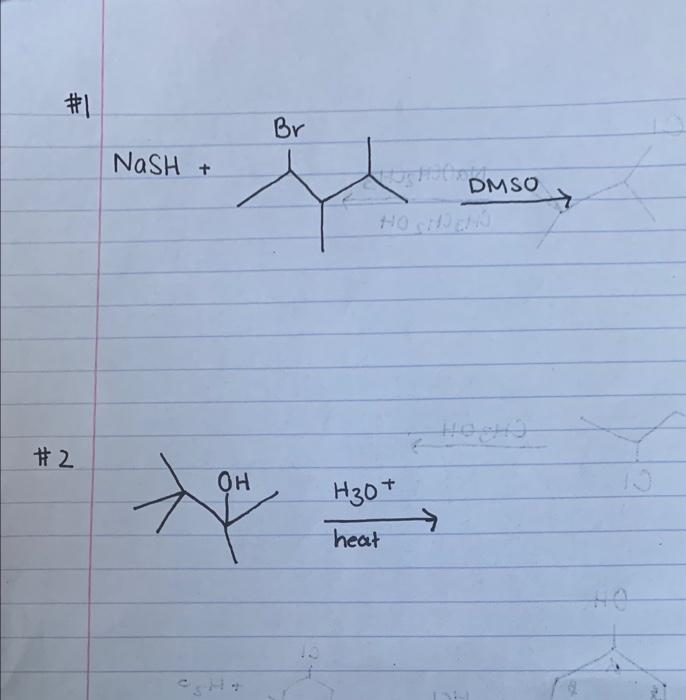 #1
Br
NaSH +
DMSO
#2
OH
H3O+
heat